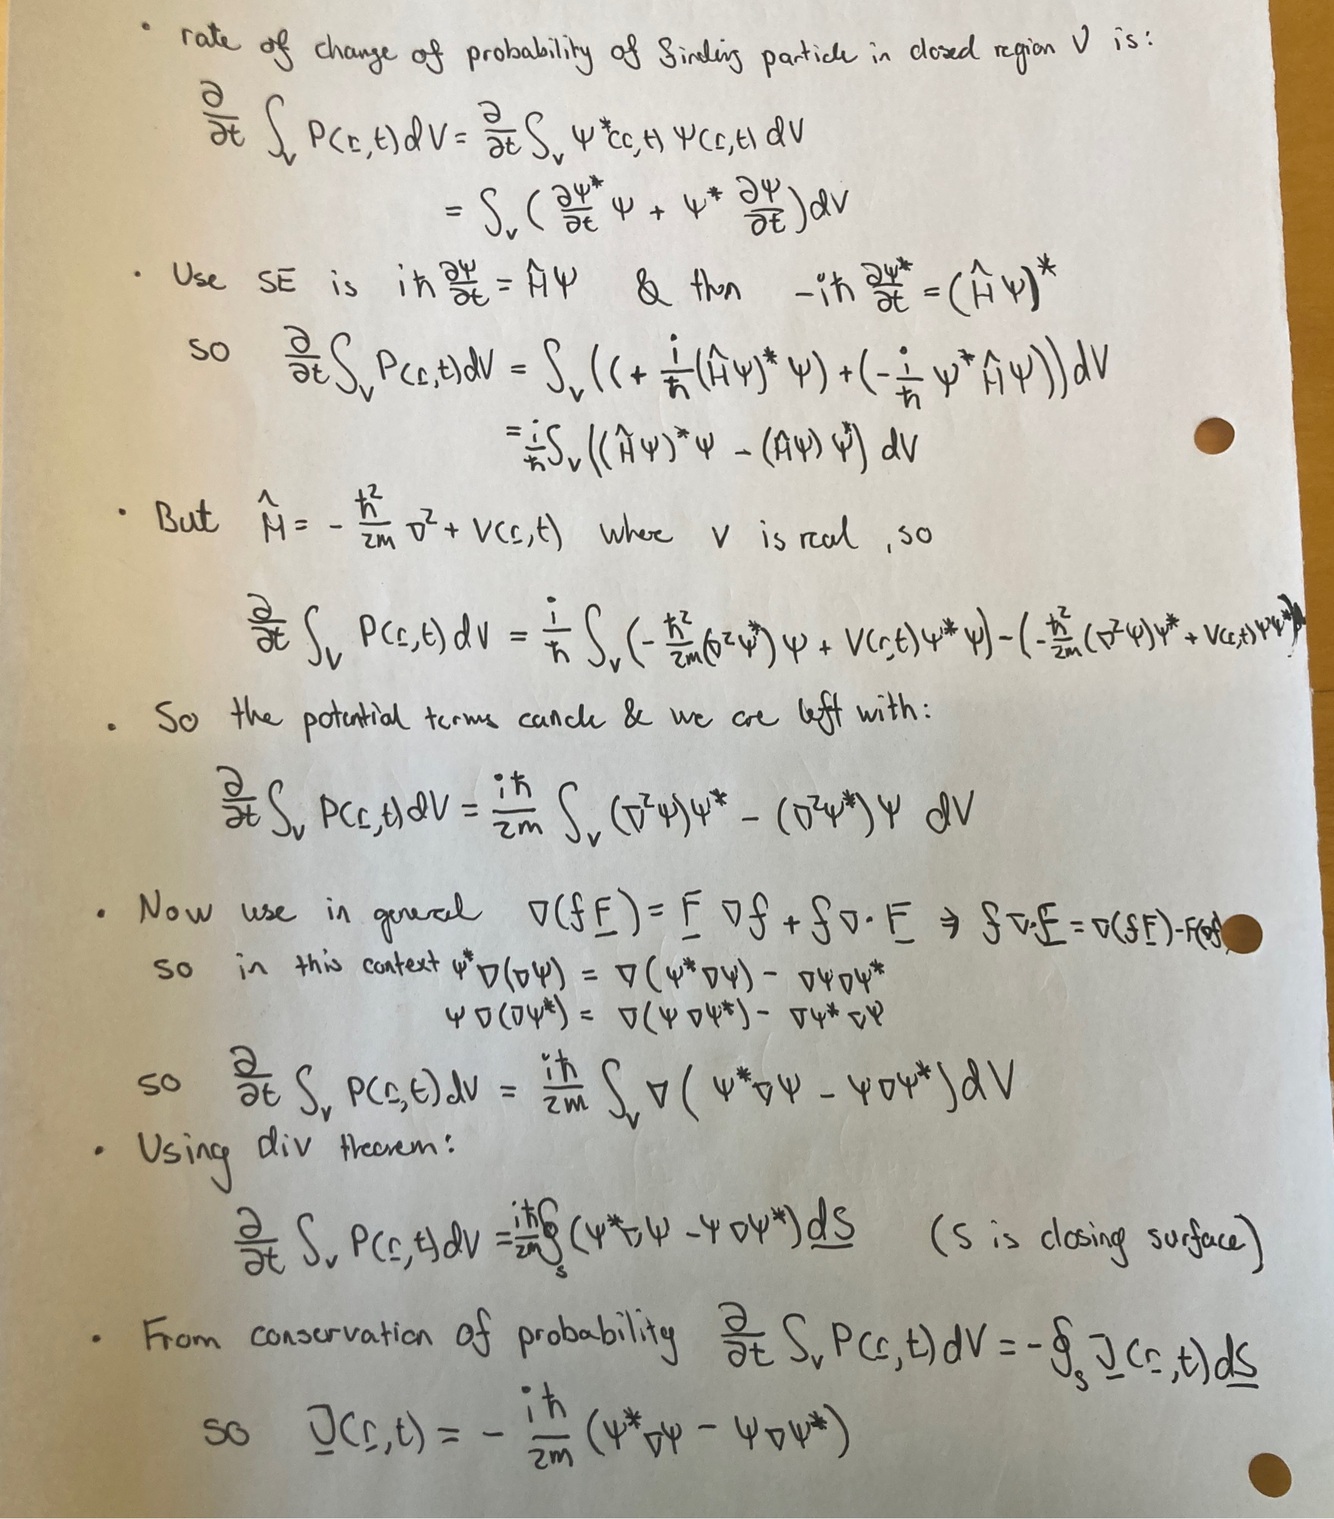 • rate of change of probability of finding particle in closed region V is:
∂/∂t ∫_V P(r,t)dV = ∂/∂t ∫_V Ψ*(r,t) Ψ(r,t) dV
= ∫_V (∂Ψ*/∂t Ψ + Ψ* ∂Ψ/∂t)dV
• Use SE is iħ ∂Ψ/∂t = ĤΨ & then -iħ ∂Ψ*/∂t = (ĤΨ)*
so ∂/∂t ∫_V P(r,t)dV = ∫_V ((+ i/ħ (ĤΨ)* Ψ) + (- i/ħ Ψ* ĤΨ))dV
= i/ħ ∫_V ((ĤΨ)* Ψ - (ĤΨ) Ψ*) dV
• But Ĥ = - ħ²/2m ∇² + V(r,t) where V is real, so
∂/∂t ∫_V P(r,t)dV = i/ħ ∫_V (- ħ²/2m (∇²Ψ*)Ψ + V(r,t)Ψ*Ψ) - (- ħ²/2m (∇²Ψ)Ψ* + V(r,t)ΨΨ*)
• So the potential terms cancle & we are left with:
∂/∂t ∫_V P(r,t)dV = iħ/2m ∫_V (∇²Ψ)Ψ* - (∇²Ψ*)Ψ dV
• Now use in general ∇(fF) = F ∇f + f∇·F ⇒ f∇·F = ∇(fF)-F(∇f)
so in this context Ψ*∇(∇Ψ) = ∇(Ψ*∇Ψ) - ∇Ψ∇Ψ*
Ψ∇(∇Ψ*) = ∇(Ψ∇Ψ*) - ∇Ψ*∇Ψ
so ∂/∂t ∫_V P(r,t)dV = iħ/2m ∫_V ∇(Ψ*∇Ψ - Ψ∇Ψ*)dV
• Using div theorem:
∂/∂t ∫_V P(r,t)dV = iħ/2m ∮_S (Ψ*∇Ψ - Ψ∇Ψ*)dS (S is closing surface)
• From conservation of probability ∂/∂t ∫_V P(r,t)dV = -∮_S J(r,t)dS
so J(r,t) = - iħ/2m (Ψ*∇Ψ - Ψ∇Ψ*)